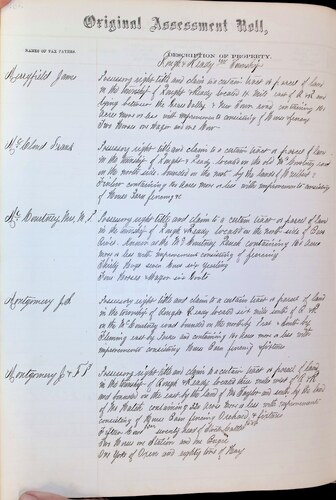 Original Assessment Roll,
NAMES OF TAX PAYERS
DESCRIPTION OF PROPERTY.
Rough & Ready Township
Merryfield James
Possessory right title and claim to certain tract or parcel of land
in the township of Rough & Ready located
lying between the Grass Valley & New Town road containing
acres more or less with improvements consisting of House fencing
Two Horses one Wagon and one Cow
Possessory right title and claim to a certain tract or parcel of land
in the township of Rough & Ready located on the old McCourtney road
on the north side bounded on the north by the lands of
containing acres more or less with improvements consisting
of House Barn fencing &c
McCourtney, Mrs, M. P.
Possessory right title and claim to a certain tract or parcel of land
in the township of Rough & Ready located on the north side of Bear
River Known as the McCourtney Ranch containing
more or less with improvements consisting of fencing
Thirty Hogs seven Cows six yearling
Four Horses & Wagon six Goats
Montgomery J. A.
Possessory right title and claim to a certain tract or parcel of land
in the township of Rough & Ready located six mile south of G. V.
on the McCourtney road bounded on the north by Pass & South by
Fleming east by containing acres more or less with
improvements consisting House Barn fencing & fixtures
Montgomery J. & T. P.
Possessory right title and claim to a certain tract or parcel of land
in the township of Rough & Ready located three mile west of G. V.
and bounded on the east by the land of McTaylor and south by the land
of containing acres more or less with improvements
consisting of House Barn fencing Orchard & fixtures
Fifteen Cows seventy head of
Two Horses one Stallion and one Buggie
One Yoke of Oxen and eighty tons of Hay